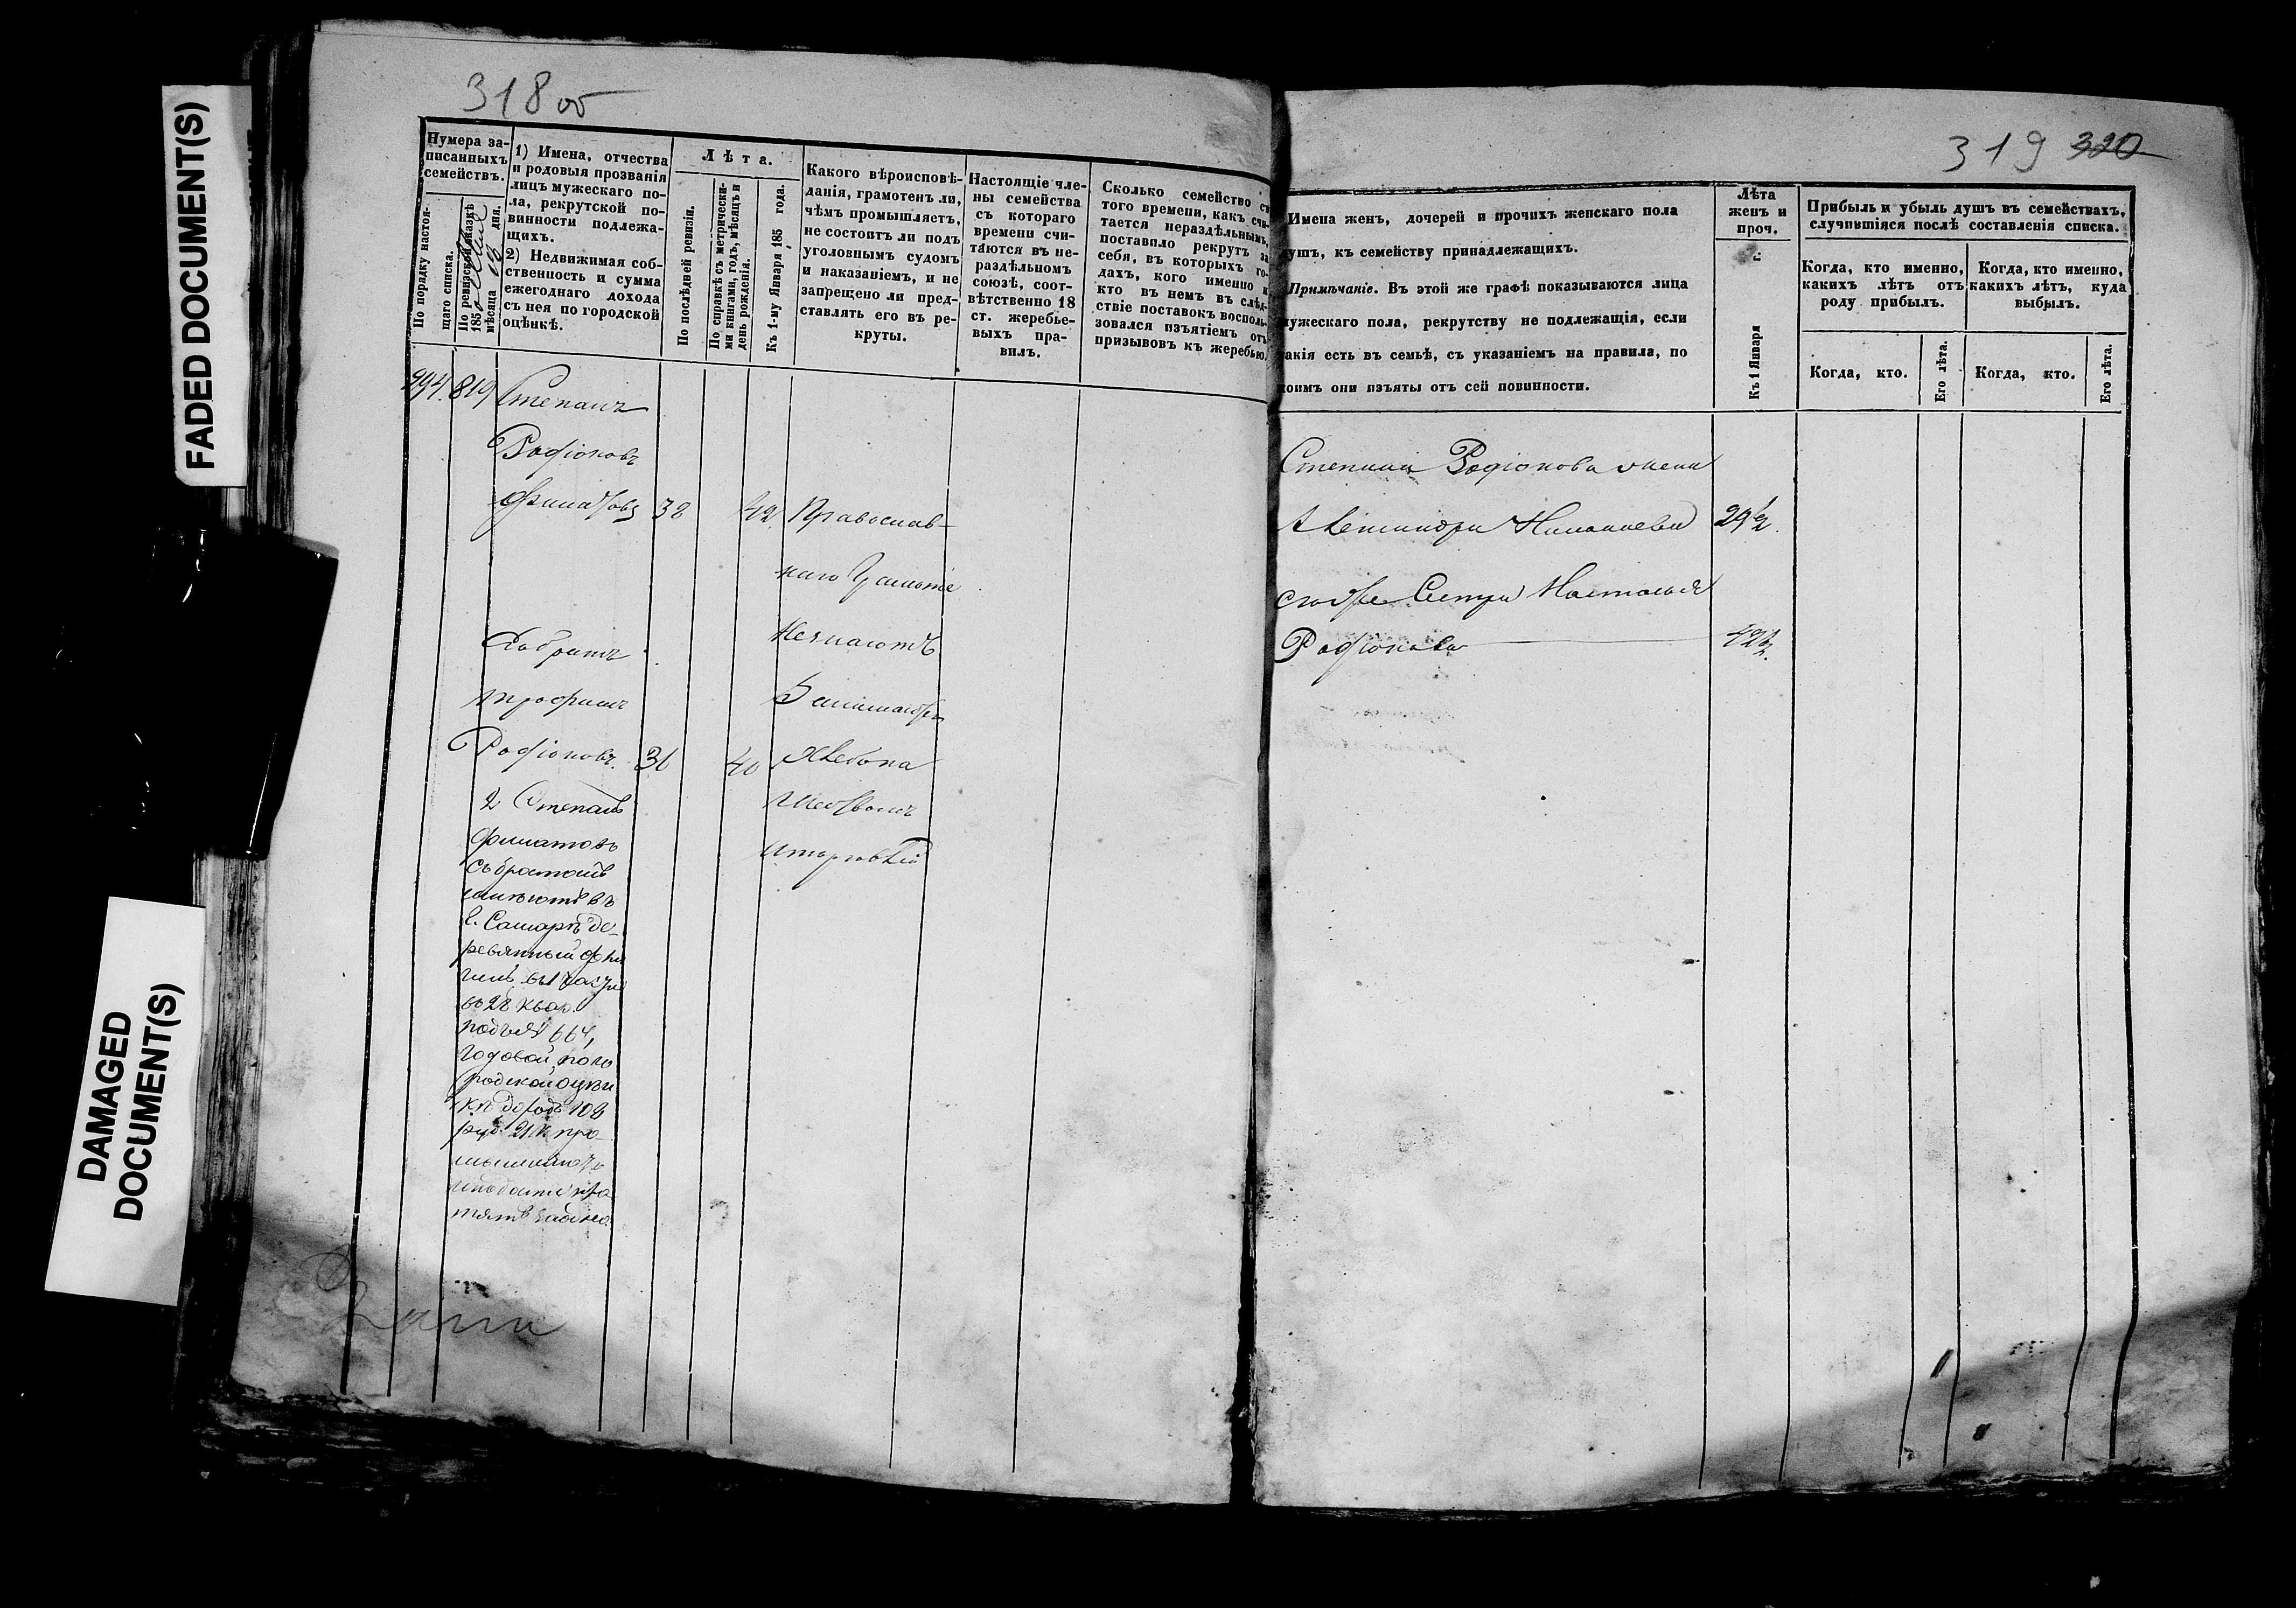 FADED DOCUMENT(S)
DAMAGED
DOCUMENT(S)
318 об
Нумера за-
писанныхъ
семействъ.
По порядку настоя-
щаго списка.
По ревизской сказкѣ
185
мѣсяца 18 дня.
1) Имена, отчества
и родовыя прозванія
лицъ мужескаго по-
ла, рекрутской по-
винности подлежа-
щихъ.
2) Недвижимая соб-
ственность и сумма
ежегоднаго дохода
съ нея по городской
оцѣнкѣ.
Лѣта.
По послѣдней ревизіи.
По справкѣ съ метрически-
ми книгами, годъ, мѣсяцъ и
день рожденія.
Къ 1-му Января 185 года.
Какого вѣроисповѣ-
данія, грамотенъ ли,
чѣмъ промышляетъ,
не состоитъ ли подъ
уголовнымъ судомъ
и наказаніемъ, и не
запрещено ли пред-
ставлять его въ ре-
круты.
Настоящіе чле-
ны семейства
съ котораго
времени счи-
таются въ не-
раздѣльномъ
союзѣ, соот-
вѣтственно 18
ст. жеребье-
выхъ пра-
вилъ.
Сколько семейство съ
того времени, какъ счи-
тается нераздѣльнымъ,
поставило рекрутъ за
себя, въ которыхъ го-
дахъ, кого именно и
кто въ немъ въ слѣд-
ствіе поставокъ восполь-
зовался изъятіемъ отъ
призывовъ къ жеребью.
994. 819 Степанъ
Родіоновъ
Филатовъ 38 42 Православ-
наго Грамоте
Незнаютъ
Занимаются
Хлебопа
шествомъ
иторговлей
Его братъ
Трофимъ
Родіоновъ. 36 40
2 Степанъ
Филатовъ
събратомъ
имѣютъ въ
г. Самарѣ де-
ревянный фли
гель, въ1 части
во 2й квар.
подъ № 664,
годовой, пого
родской оцѣн
кѣ доходъ 109
руб. 21 к про
мышляютъ
иподати пла
тятъ
319 320
Имена женъ, дочерей и прочихъ женскаго пола
душъ, къ семейству принадлежащихъ.
Примѣчаніе. Въ этой же графѣ показываются лица
мужескаго пола, рекрутству не подлежащія, если
такія есть въ семьѣ, съ указаніемъ на правила, по
коимъ они изъяты отъ сей повинности.
Лѣта
женъ и
проч.
Къ 1 Января
Прибыль и убыль душъ въ семействахъ,
случившіяся послѣ составленія списка.
Когда, кто именно,
какихъ лѣтъ отъ
роду прибылъ.
Когда, кто именно,
какихъ лѣтъ, куда
выбылъ.
Когда, кто.
Его лѣта.
Когда, кто.
Его лѣта.
Степана Родіонова жена
Александра 29½.
Сестра Настасья
Родіонова 42½.